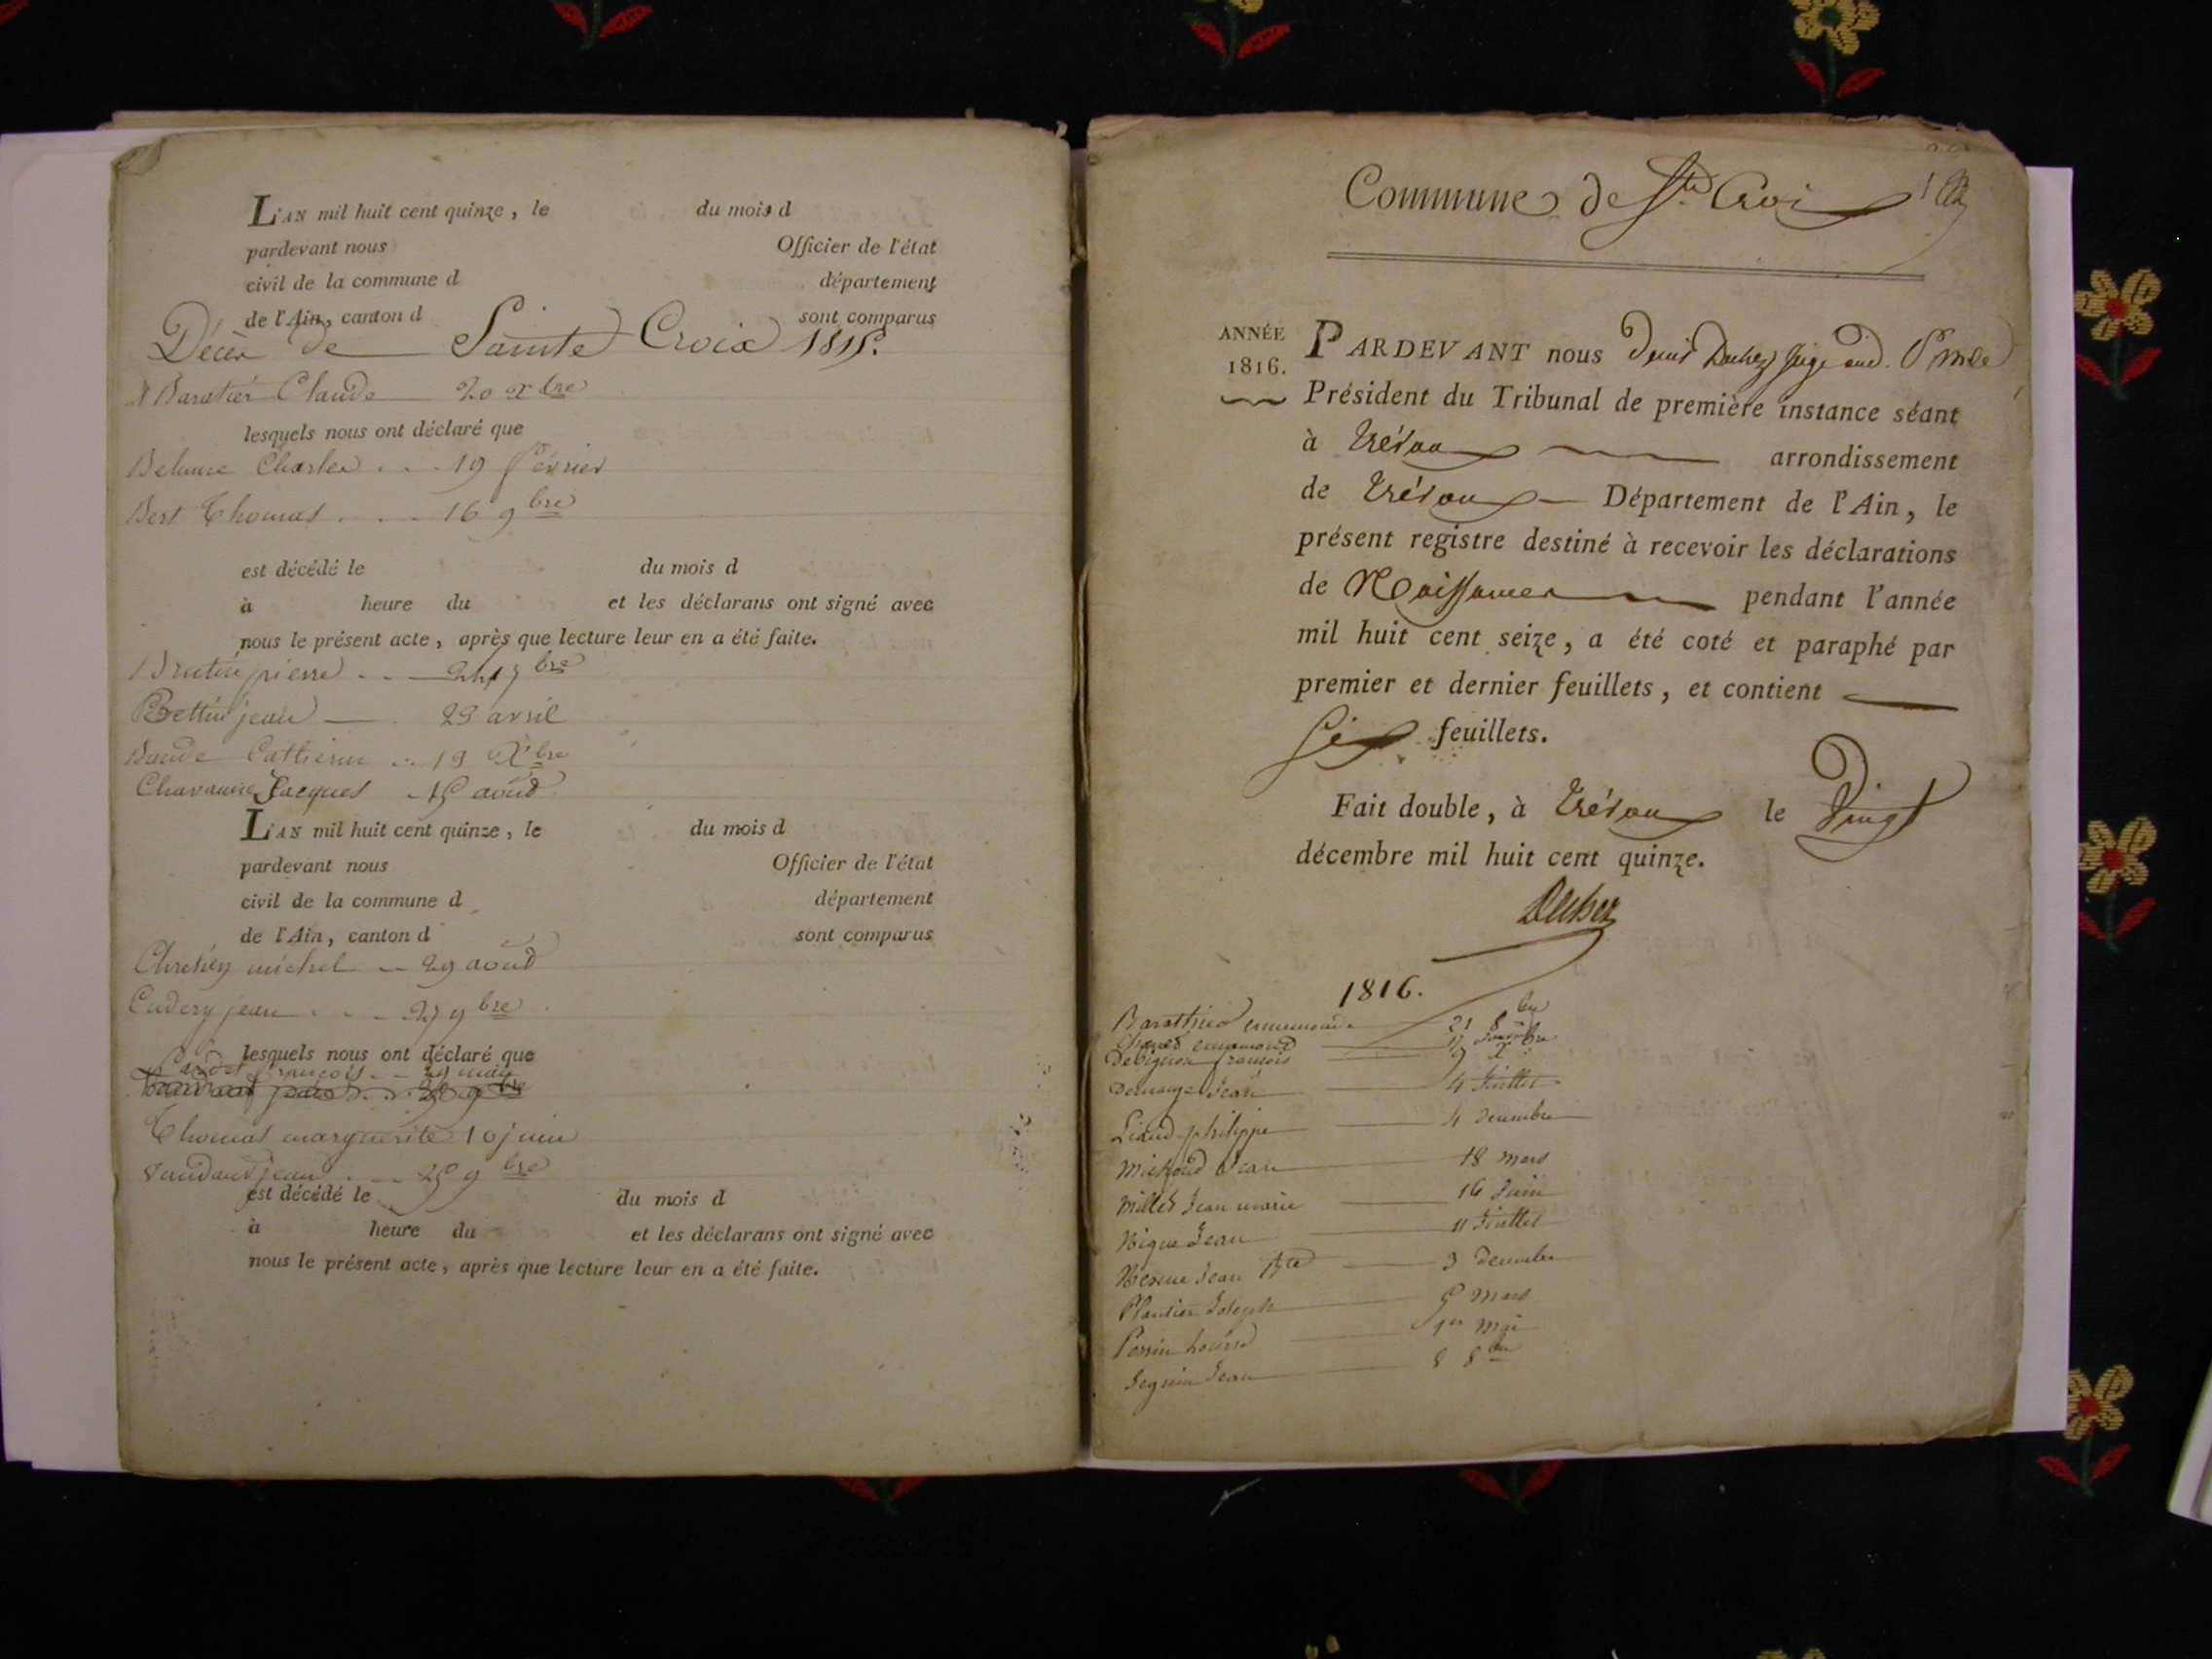 L'AN mil huit cent quinze, le du mois d
pardevant nous Officier de l'état
civil de la commune d département
de l'Ain, canton d sont comparus
Décès de Sainte Croix 1815.
Baratier Claude 20 Xbre
lesquels nous ont déclaré que
Charles . . . 19 février
Bert Thomas . . . 16 9bre
est décédé le du mois d
à heure du et les déclarans ont signé avec
nous le présent acte, après que lecture leur en a été faite.
pierre . . bre
jean 29 avril
Baude Catherine .. 19 Xbre
Chavanne Jacques - 15 août
L'AN mil huit cent quinze, le du mois d
pardevant nous Officier de l'état
civil de la commune d département
de l'Ain, canton d sont comparus
Chretien michel - 29 août
Cudery jean . . - 27 9bre
lesquels nous ont déclaré que
françois - -
Thomas marguerite 10 juin
Vaudant jean . - - 25 9bre
est décédé le du mois d
à heure du et les déclarans ont signé avec
nous le présent acte, après que lecture leur en a été faite.
Commune de Ste Croix
ANNÉE
1816.
PARDEVANT nous Denis Duchez juge
Président du Tribunal de première instance séant
à Trévoux arrondissement
de Trévoux Département de l'Ain, le
présent registre destiné à recevoir les déclarations
de Naissances pendant l'année
mil huit cent seize, a été coté et paraphé par
premier et dernier feuillets, et contient
Six feuillets.
Fait double, à Trévoux le Vingt
décembre mil huit cent quinze.
Duchez
1816.
21 8bre
françois 9 Xbre
Jean 4 Juillet
philippe 4 decembre
Michoud Jean 18 mars
Millet Jean marie 16 Juin
Nique Jean 11 Juillet
Jean Bte 3 decembre
Plantier Joseph 5 mars
Perrin Louise 1er mai
Seguin Jean 8 8bre